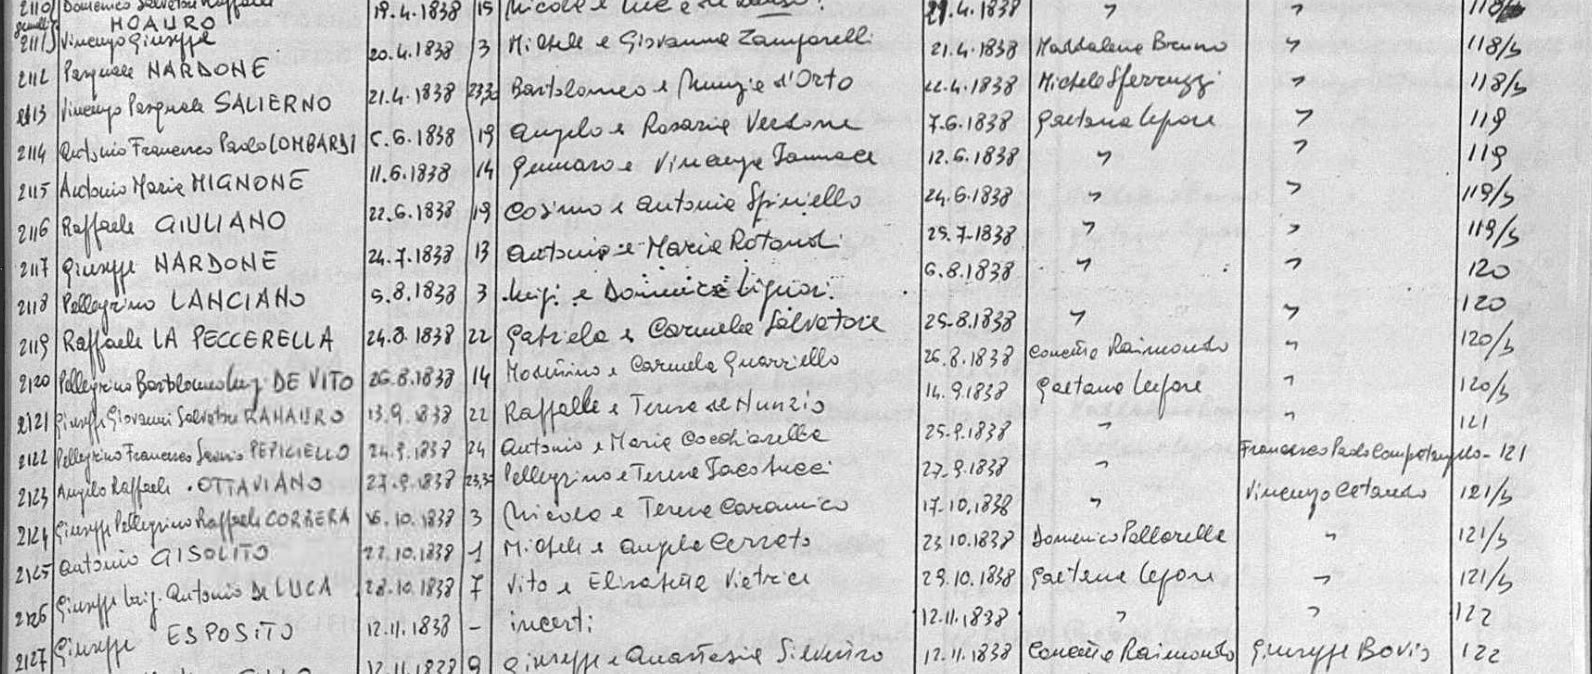 2110 Domenico Salvatore Raffaele 19.4.1838 15 Nicola e 21.4.1838 " " 118
gemelli MOAURO
2111 Vincenzo Giuseppe 20.4.1838 3 Michele e Giovanna Zamparelli 21.4.1838 Maddalena Bruno " 118/b
2112 Pasquale NARDONE 21.4.1838 23,30 Bartolomeo e Nunzia d'Orto 22.4.1838 Michele Sferruzzi " 118/b
2113 Vincenzo Pasquale SALIERNO 6.1838 19 Angelo e Rosaria Verdone 7.6.1838 Gaetana Lepore " 119
2114 Antonio Francesco Paolo LOMBARDI 11.6.1838 14 Gennaro e Vincenza Iannace 12.6.1838 " " 119
2115 Antonio Maria MIGNONE 22.6.1838 19 Cosimo e Antonia Spiniello 24.6.1838 " " 119/b
2116 Raffaele GIULIANO 24.7.1838 13 Antonio e Maria Rotondi 25.7.1838 " " 119/b
2117 Giuseppe NARDONE 5.8.1838 3 Luigi e Domenica Liguori 6.8.1838 " " 120
2118 Pellegrino LANCIANO 24.8.1838 22 Gabriele e Carmela Salvatore 25.8.1838 " " 120
2119 Raffaele LA PECCERELLA 26.8.1838 14 Modestino e Carmela Guarriello 26.8.1838 Concetta Raimondo " 120/b
2120 Pellegrino Bartolomeo Luigi DE VITO 13.9.1838 22 Raffaele e Teresa de Nunzio 14.9.1838 Gaetana Lepore " 120/b
2121 Giuseppe Giovanni Salvatore RAMAURO 24.9.1838 24 Antonio e Maria Cocchiarella 25.9.1838 " " 121
2122 Pellegrino Francesco Saverio PEPICIELLO 27.9.1838 23,30 Pellegrino e Teresa Iacobucci 27.9.1838 " Francesco Paolo Campolongo - 121
2123 Angelo Raffaele OTTAVIANO 16.10.1838 3 Nicola e Teresa Caramico 17.10.1838 " Vincenzo Cotardo 121/b
2124 Giuseppe Pellegrino Raffaele CORRERA 22.10.1838 1 Michele e Angela Cerreto 23.10.1838 Domenico Pallarella " 121/b
2125 Antonio GISOLITO 28.10.1838 7 Vito e Elisabetta Vietri 29.10.1838 Gaetana Lepore " 121/b
2126 Giuseppe Luigi Antonio De LUCA 12.11.1838 - incerti 12.11.1838 " " 122
2127 Giuseppe ESPOSITO 12.11.1838 9 Giuseppe e Anastasia Silvestro 12.11.1838 Concetta Raimondo Giuseppe Bovio 122